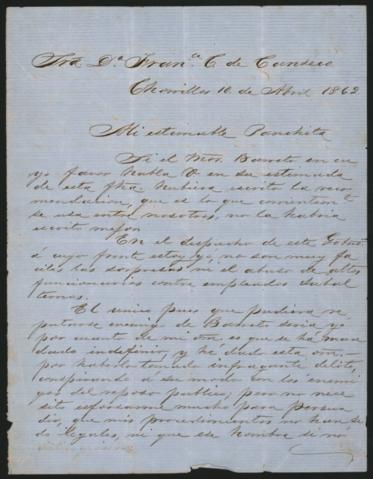 Sra. Da. Franca. C. de Canseco
Chorrillos 10 de Abril 1862
Mi estimable Panchita
Si el Mor. Barreto en cu
yo favor habla V. en su estimada
de esta fha. hubiera escrito la reco
mendacion, que es lo que corrientemte.
se usa entre nosotros, no la habria
escrito mejor.
En el despacho de este
á cuyo frente estoy yó, no son muy fa
ciles las sorpresas ni el abuso de altos
funcionarios contra empleados subal
ternos.
El unico pues que pudiera re
putarse enemigo de Barreto seria yo
por cuanto de mi orn. es que se ha man
dado, y he dado esta orn.
por haberlo tomado infraganti delito,
conspirando a su modo con los enemi
gos del reposo publico; pero no nece
sito esforzarme mucho para persua
dir, que mis procedimientos no han si
do ilegales, ni que ese hombre si no